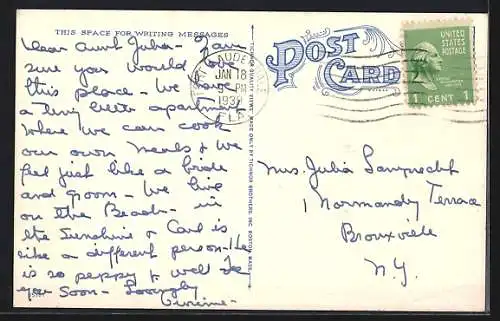 THIS SPACE FOR WRITING MESSAGES
Dear Aunt Julia - I am
sure you would love
this place - We have
a tiny little apartment
where we can cook
our own meals & we
feel just like a bride
and groom - We live
on the Beach - in
the Sunshine & Carl is
like a different person - He
is so peppy & well. See
you soon - Lovingly
POST CARD
FORT LAUDERDALE
JAN 18
PM
FLA
UNITED STATES POSTAGE
1 CENT 1
Mrs. Julia Lamprecht
1 Normandy Terrace
Bronxville
N.Y.